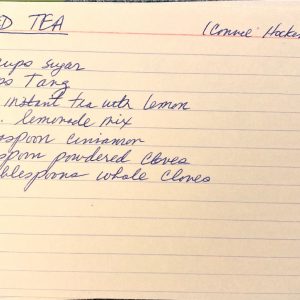 ED TEA (Connie Hocker
cups sugar
ps Tang
instant tea with lemon
. lemonade mix
aspoon cinnamon
spoon powdered cloves
blespoons whole cloves